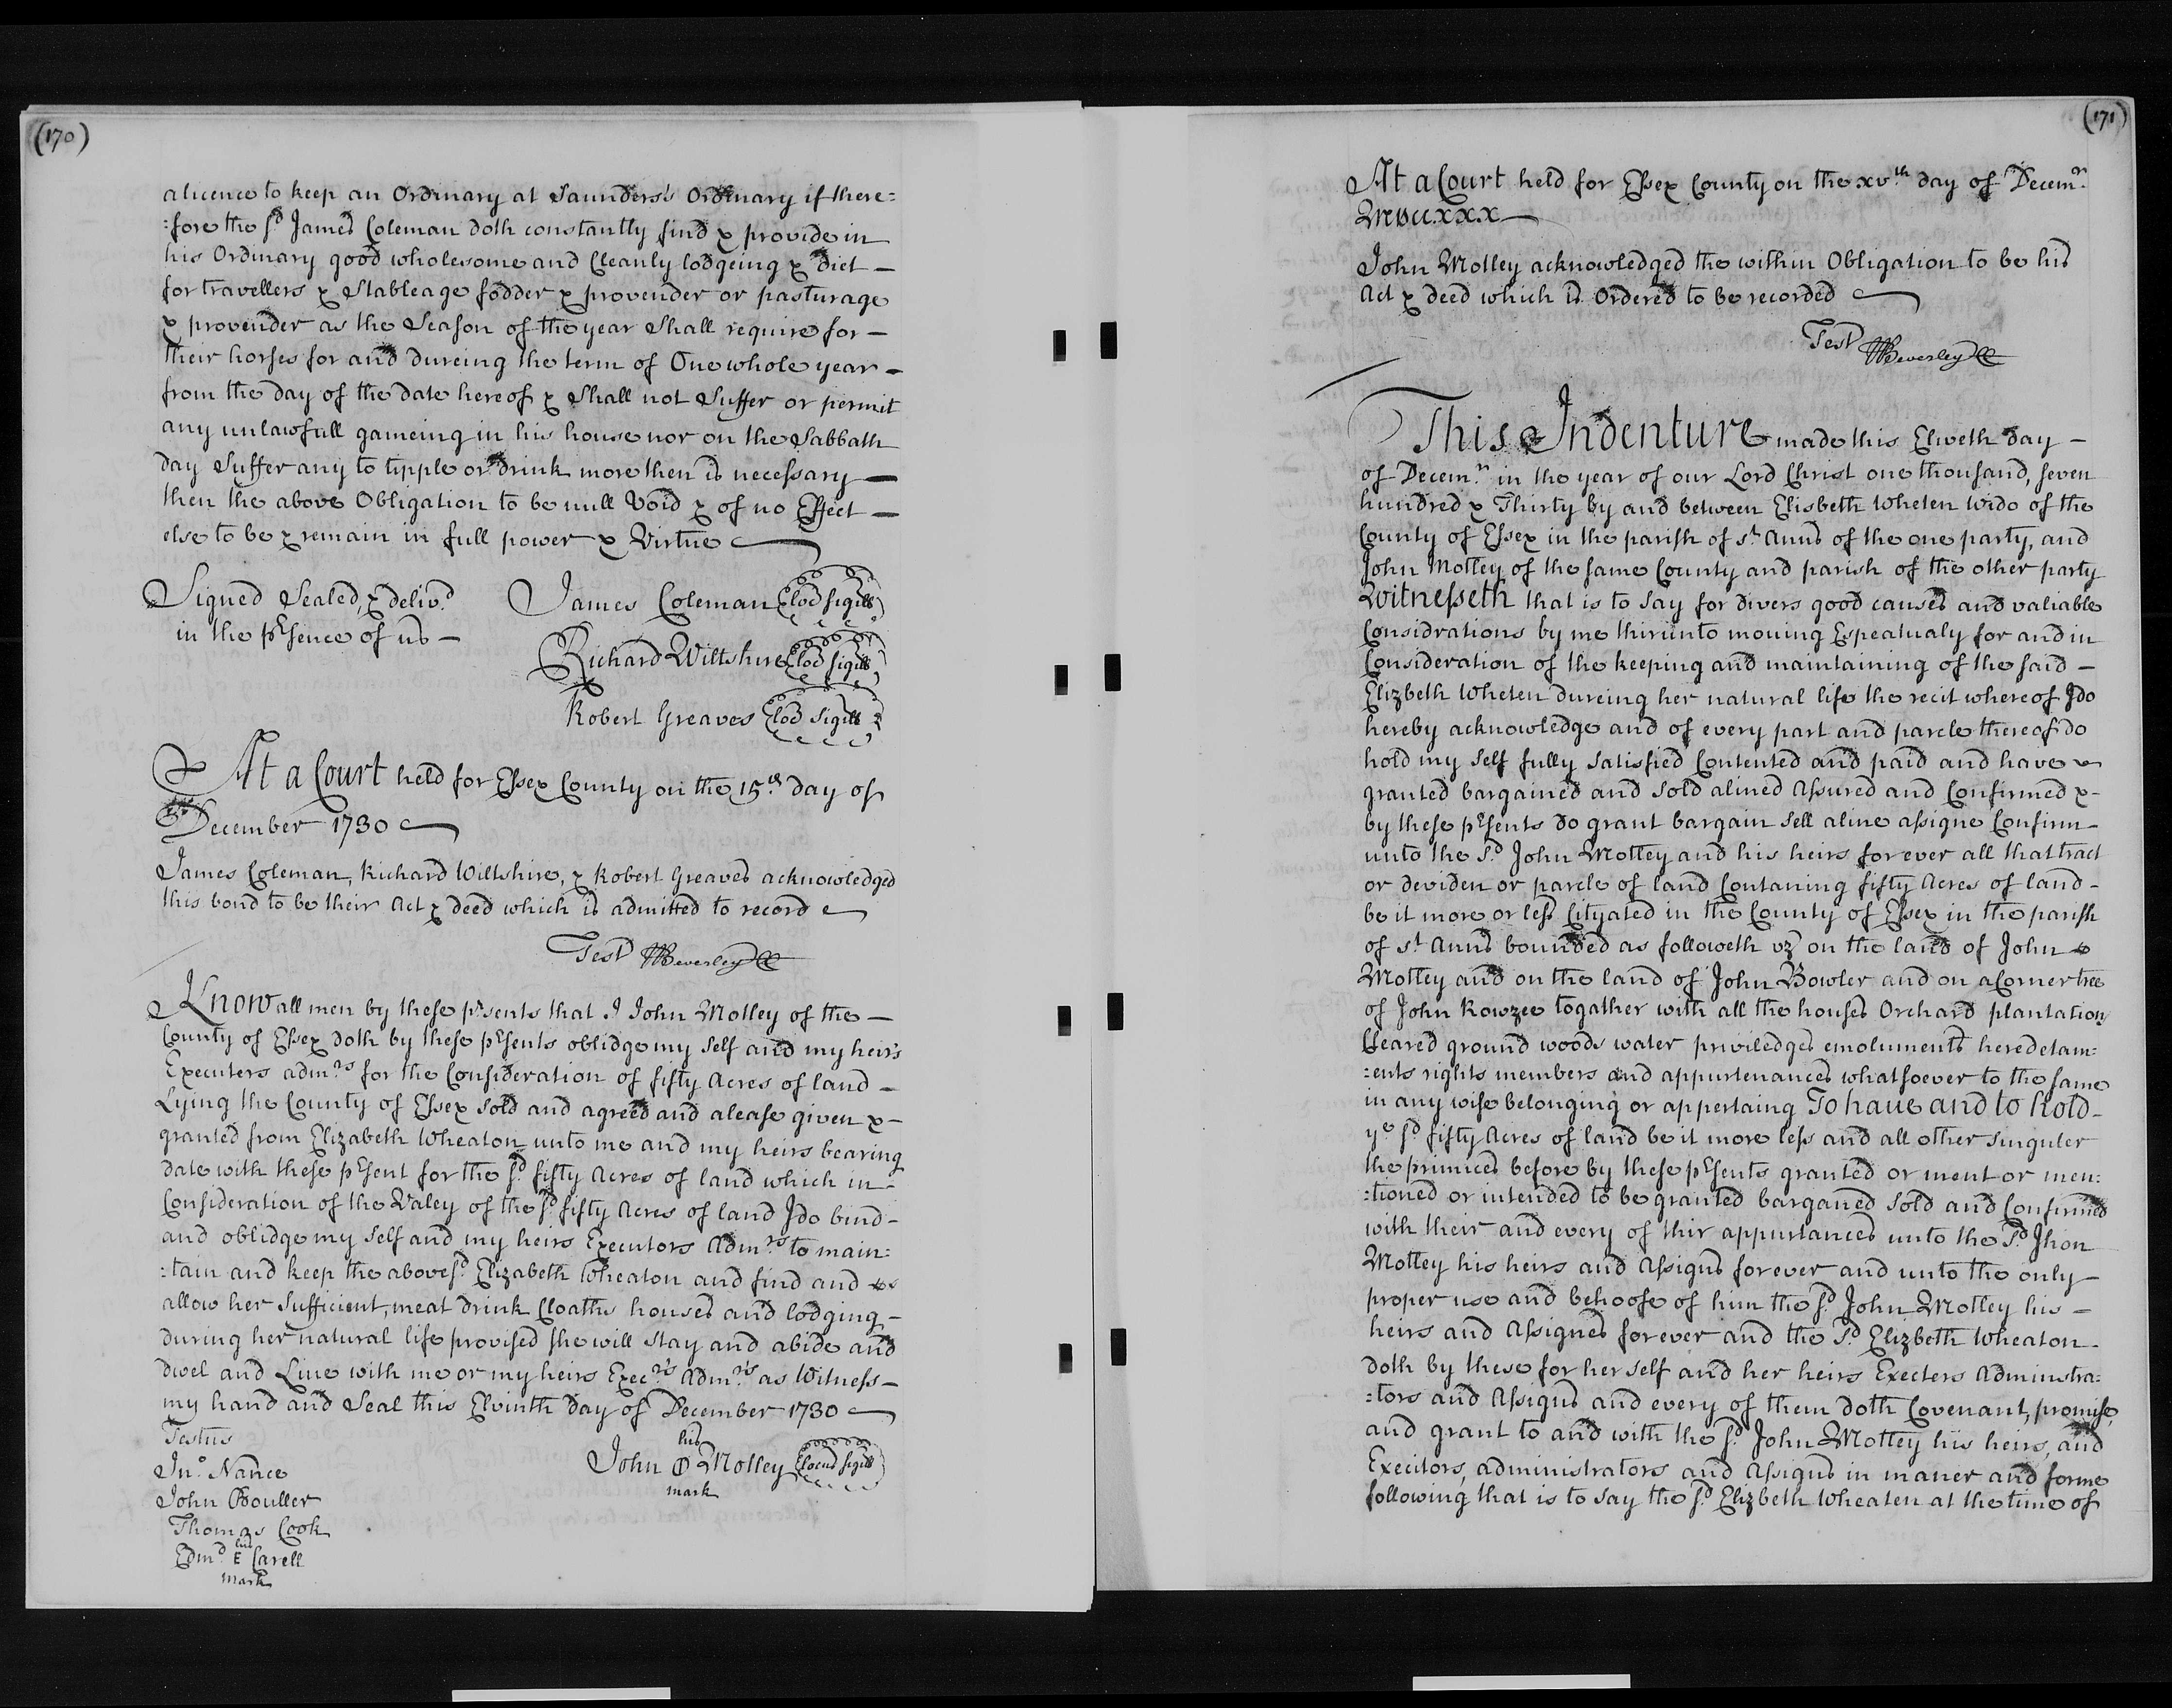 (170)
alicence to keep an Ordinary at Saunders's Ordinary if there=
:fore the sd James Coleman doth constantly find & provide in
his Ordinary good wholesome and Cleanly lodgeing & diet —
for travellers & Stableage fodder & provender or pasturage
& provender as the Season of the year Shall require for —
their horses for and dureing the term of One whole year —
from the day of the date hereof & Shall not Suffer or permit
any unlawfull gameing in his house nor on the Sabbath
day Suffer any to tipple or drink more then is necessary —
then the above Obligation to be null Void & of no Effect —
else to be & remain in full power & Virtue
Signed Sealed, & delivd
in the prsence of us —
James Coleman (locs sigill)
Richard Wiltshire (locs sigill)
Robert Greaves (locs sigill)
At a Court held for Essex County on the 15th day of
December 1730
James Coleman, Richard Wiltshire, & Robert Greaves acknowledged
this bond to be their Act & deed which is admitted to record
Test WBeverley CC
Know all men by these prsents that I John Motley of the —
County of Essex doth by these prsents oblidge my Self and my heirs
Executers admrs for the Consideration of fifty Acres of land —
Lying the County of Essex Sold and agreed and alease given & -
granted from Elizabeth Wheaton unto me and my heirs bearing
date with these prsent for the sd fifty Acres of land which in -
Consideration of the Valey of the sd fifty Acres of land I do bind -
and oblidge my Self and my heirs Executors Admrs to main:
:tain and keep the abovesd Elizabeth Wheaton and find and
allow her Sufficient, meat drink Cloaths houses and lodging -
during her natural life provised she will Stay and abide and
dwel and Live with me or my heirs Execrs Admrs as Witness —
my hand and Seal this Elvinth day of December 1730
Testus
Jno Nance
John Bouller
Thomas Cook
his
Edmd E Carell
mark
his
John O Motley (locus sigill)
mark
(171)
At a Court held for Essex County on the xvth day of Decemr
MDCCXXX —
John Motley acknowledged the within Obligation to be his
Act & deed which is Ordered to be recorded
Test WBeverley CC
This Indenture made this Elweth day —
of Decemr in the year of our Lord Christ one thousand, seven
hundred & Thirty by and between Elisbeth Wheten Wido of the
County of Essex in the parish of st Anns of the one party, and
John Motley of the same County and parish of the other party
Witnesseth that is to Say for divers good causes and valiable
Considrations by me thirunto moving Espeatualy for and in
Consideration of the keeping and maintaining of the said —
Elizbeth Wheten dureing her natural life the recit whereof I do
hereby acknowledge and of every part and parcle thereof do
hold my Self fully Satisfied Contented and paid and have
granted bargained and Sold alined Assured and Confirmed & -
by these prsents do grant bargain Sell aline assigne Confirm -
unto the sd John Motley and his heirs for ever all that tract
or deviden or parcle of land Contaning fifty Acres of land -
be it more or less Cityated in the County of Essex in the parish
of st Anns bounded as followeth vz on the land of John
Motley and on the land of John Bowler and on a Corner tree
of John Rowzee togather with all the houses Orchard plantation
Cleared ground woods water priviledges emoluments heredetam:
:ents rights members and appurtenances whatsoever to the same
in any wise belonging or appertaing To have and to hold -
ye sd fifty Acres of land be it more less and all other singuler
the primices before by these prsents granted or ment or men:
:tioned or intended to be granted barganed Sold and Confirmed
with their and every of thir appurtances unto the sd Jhon
Motley his heirs and Assigns forever and unto the only —
proper use and behoofe of him the sd John Motley his —
heirs and Assignes forever and the sd Elizbeth Wheaton -
doth by these for her self and her heirs Execters Adminstra:
:tors and Assigns and every of them doth Covenant, promise
and grant to and with the sd John Motley his heirs, and
Execitors, administrators and Assigns in maner and forme
following that is to say the sd Elizbeth Wheaten at the time of